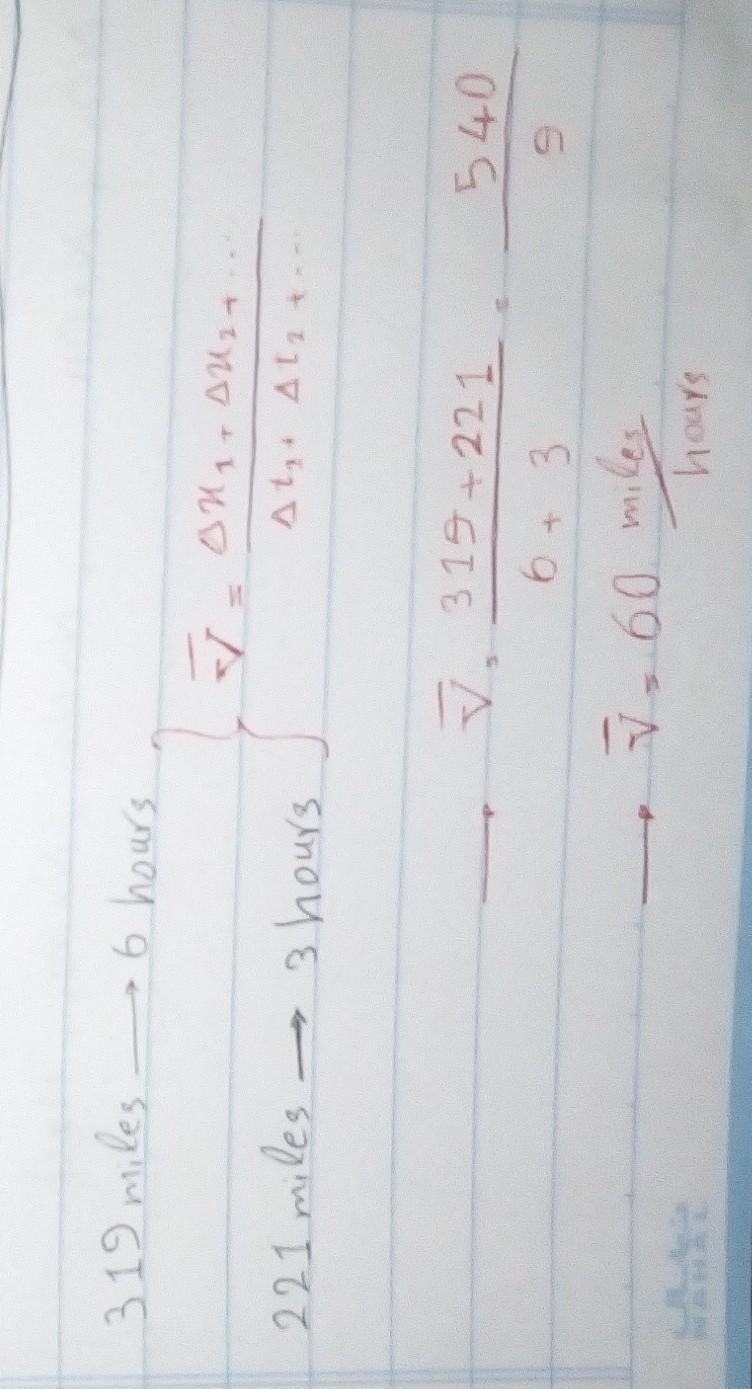 319 miles → 6 hours
221 miles → 3 hours
V̄ = Δx₁ + Δx₂ + ... / Δt₁ + Δt₂ + ...
→ V̄ = 319 + 221 / 6 + 3 = 540 / 9
→ V̄ = 60 miles / hours
NAHAL